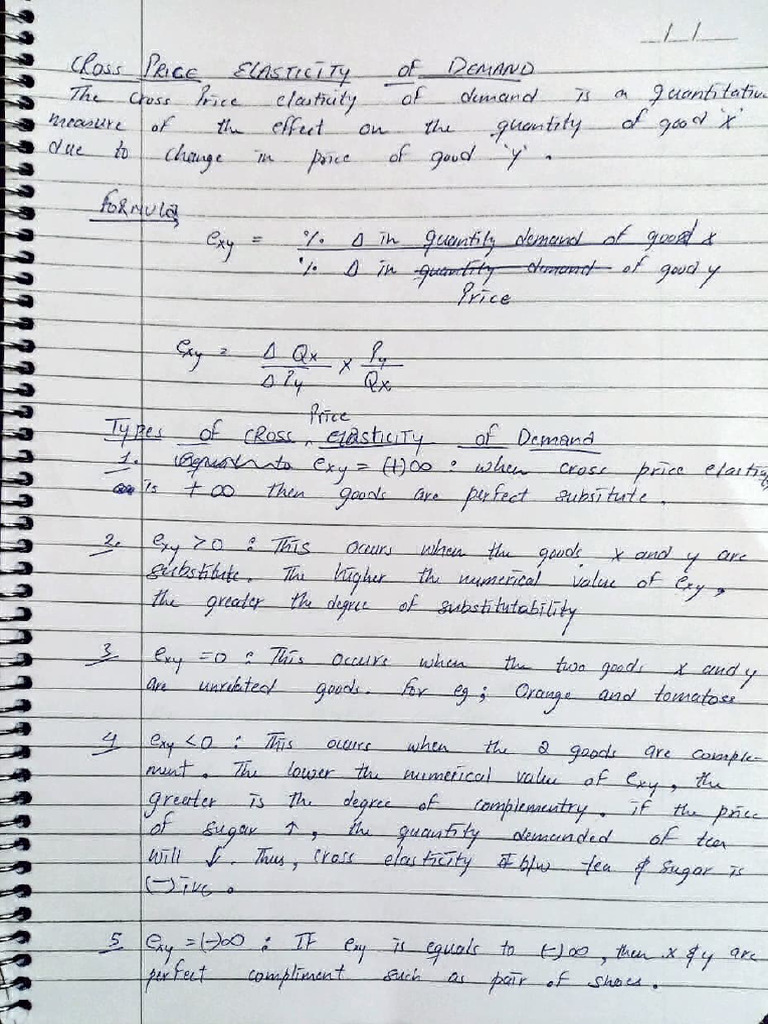 CROSS PRICE ELASTICITY of DEMAND
The cross Price elasticity of demand is a quantitative
measure of the effect on the quantity of good 'x'
due to change in price of good 'y'.
FORMULA
exy = % Δ in quantity demand of good x
% Δ in quantity demand of good y
Price
exy = Δ Qx / Δ Py × Py / Qx
Price
Types of CROSS ELASTICITY of Demand
1. exy = (+)∞ : when cross price elasticity
is + ∞ then goods are perfect subsitute.
2. exy > 0 : This occurs when the goods x and y are
substitute. The higher the numerical value of exy,
the greater the degree of substitutability
3 exy = 0 : This occurs when the two goods x and y
are unrelated goods. for eg ; Orange and tomatose
4 exy < 0 : This occurs when the 2 goods are comple-
ment. The lower the numerical value of exy, the
greater is the degree of complementry. if the price
of sugar ↑, the quantity demanded of tea
will ↓. Thus, cross elasticity b/w tea & sugar is
(-)ive.
5 exy = (-)∞ : If exy is equals to (-)∞, then x & y are
perfect compliment such as pair of shoes.